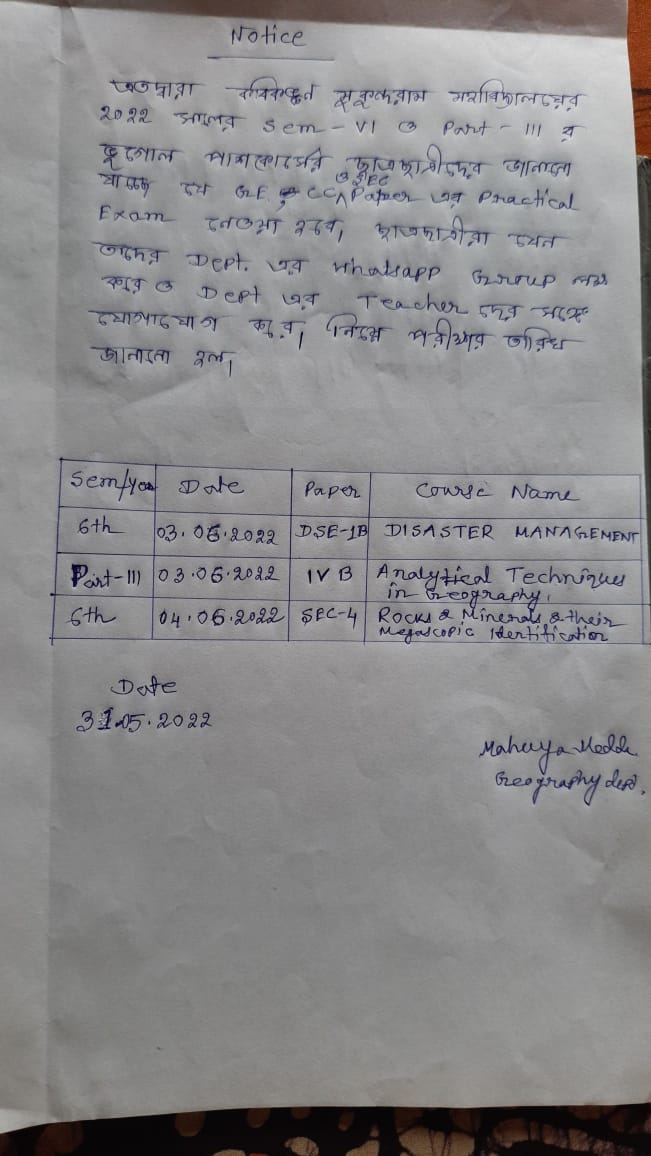 Notice
এতদ্বারা কবিকঙ্কন মুকুন্দরাম মহাবিদ্যালয়ের
2022 সালের Sem-VI ও Part-III র
ভূগোল পাশকোর্সের ছাত্রছাত্রীদের জানানো
যাচ্ছে যে G.E, CC ও SEC Paper এর Practical
Exam নেওয়া হবে, ছাত্রছাত্রীরা যেন
তাদের Dept. এর Whatsapp Group লক্ষ
করে ও Dept এর Teacher দের সঙ্গে
যোগাযোগ করে, নিম্নে পরীক্ষার তারিখ
জানানো হল,
Sem/year Date Paper Course Name
6th 03.06.2022 DSE-1B DISASTER MANAGEMENT
Part-III 03.06.2022 IV B Analytical Techniques
in Geography,
6th 04.06.2022 SEC-4 Rocks & Minerals & their
Megascopic Identification
Date
31.05.2022
Mahuya
Geography dept,